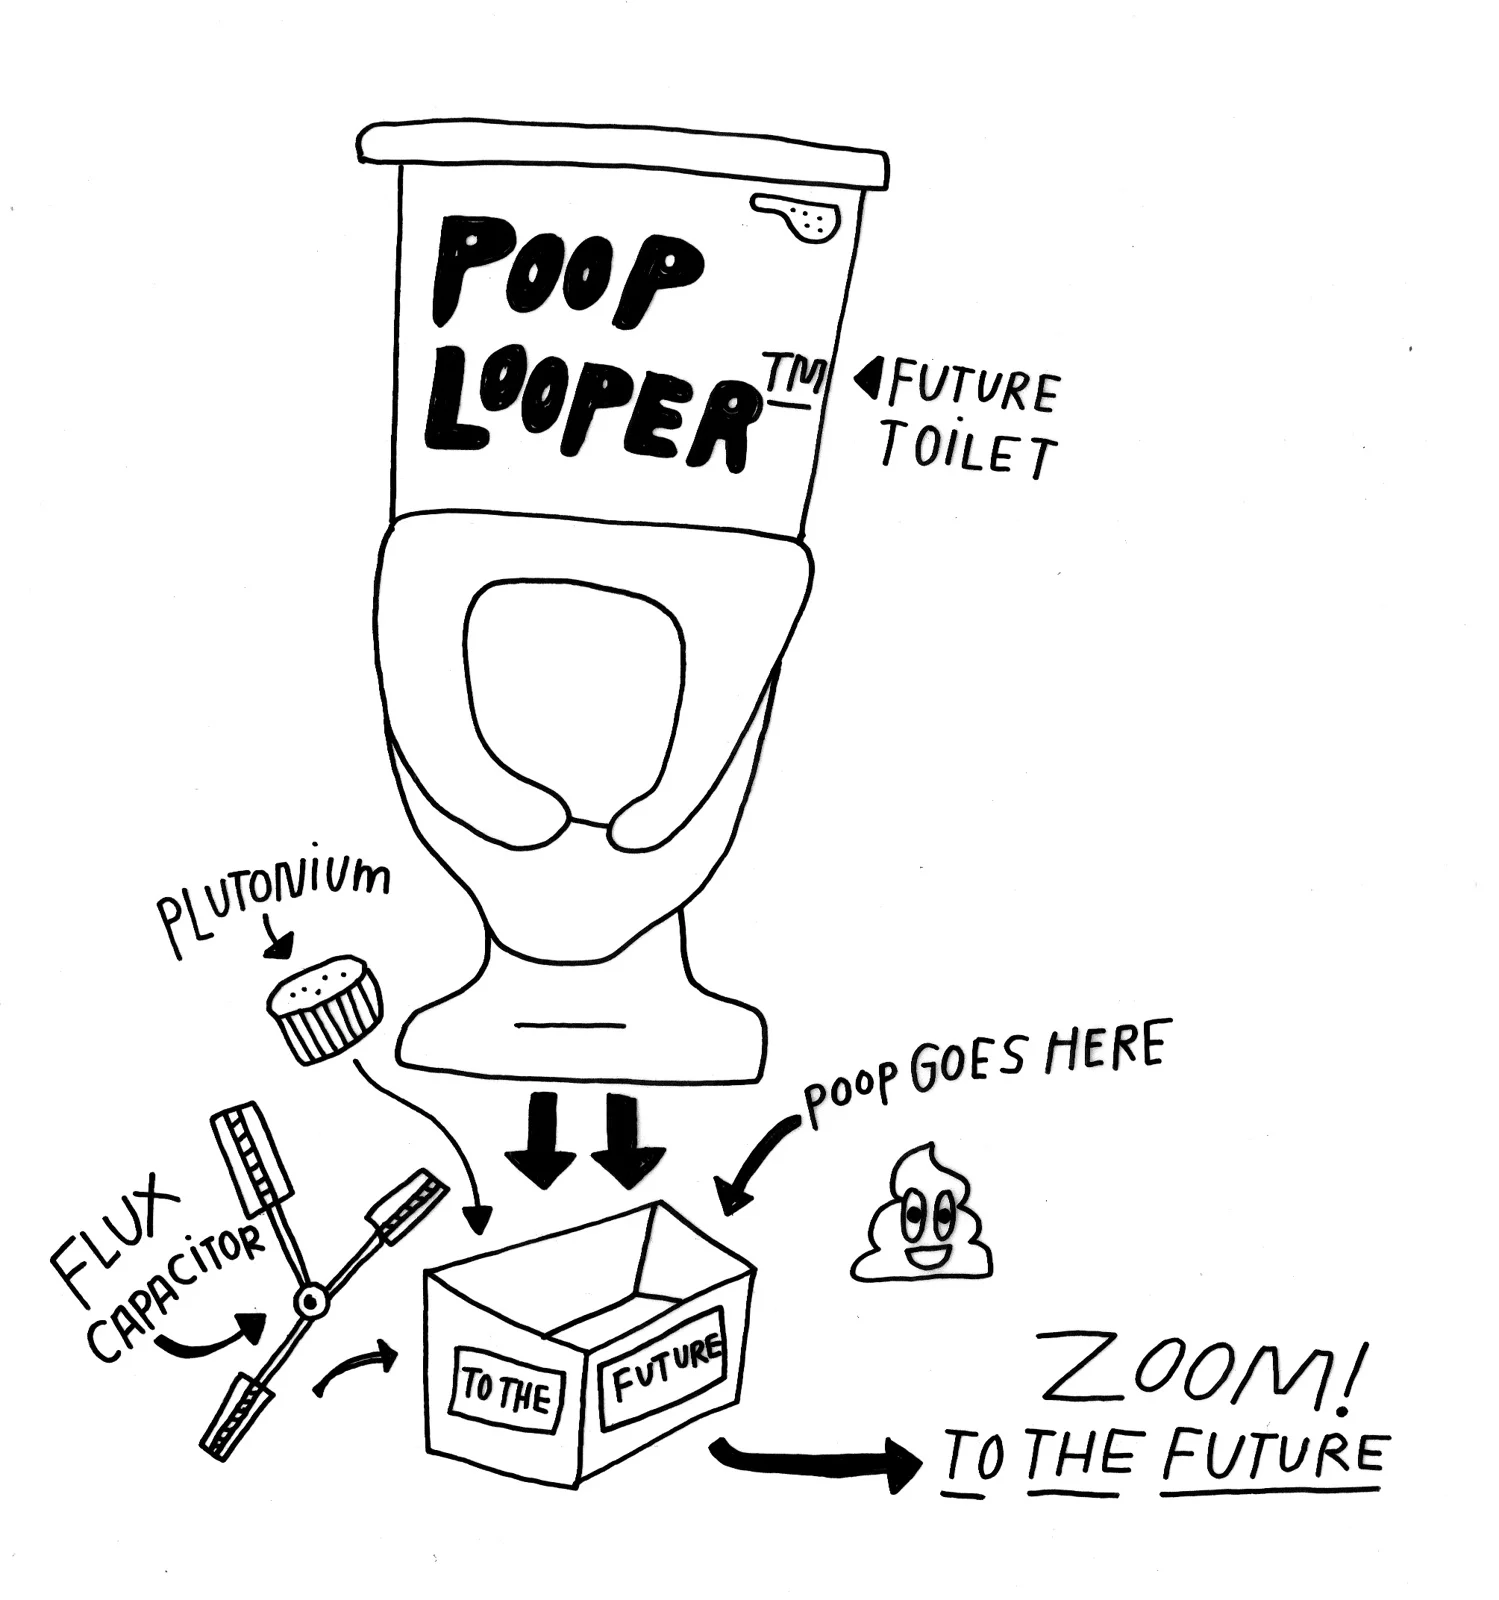 POOP
LOOPER™
FUTURE
TOiLET
PLUTONiUm
POOP GOES HERE
FLUX
CAPACiTOR
TO THE
FUTURE
ZOOM!
TO THE FUTURE